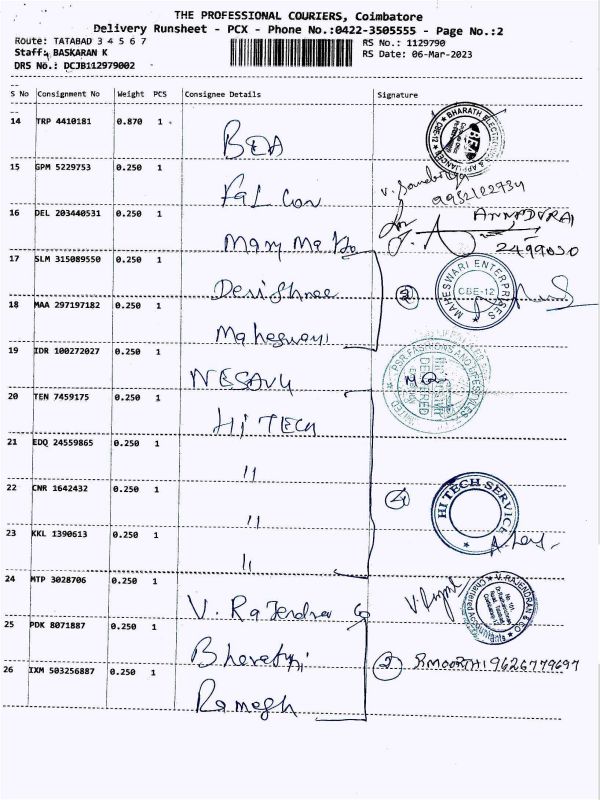 THE PROFESSIONAL COURIERS, Coimbatore
Delivery Runsheet - PCX - Phone No.:0422-3505555 - Page No.:2
Route: TATABAD 3 4 5 6 7 RS No.: 1129790
Staff: BASKARAN K RS Date: 06-Mar-2023
DRS No.: DCJB112979002
S No Consignment No Weight PCS Consignee Details Signature
14 TRP 4410181 0.870 1
15 GPM 5229753 0.250 1 Fal Con
16 DEL 203440531 0.250 1 ANNADURAI
17 SLM 315089550 0.250 1 Devi Shree 2 MAHESWARI ENTERPRISES CBE-12
18 MAA 297197182 0.250 1 Maheswari
19 IDR 100272027 0.250 1 NESAVU
20 TEN 7459175 0.250 1 Hi TECH
21 EDQ 24559865 0.250 1 "
22 CNR 1642432 0.250 1 " 4 HI TECH SERVICE
23 KKL 1390613 0.250 1 "
24 MTP 3028706 0.250 1 V. Rajendran Co V. RAJENDRAN & CO Chartered Accountants
25 PDK 8071887 0.250 1 2 9626779697
26 IXM 503256887 0.250 1 Ramesh